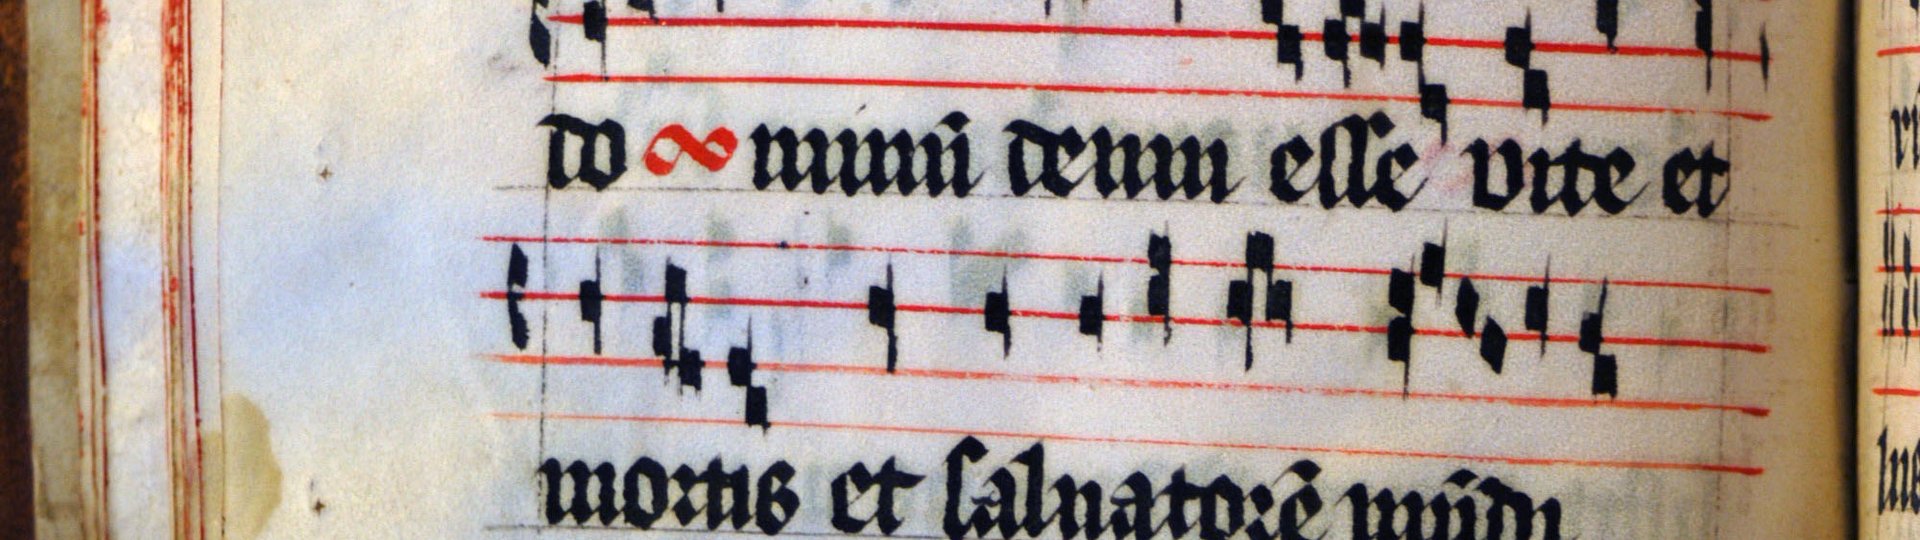 do minū deum esse vite et
mortis et saluatorē mūdi